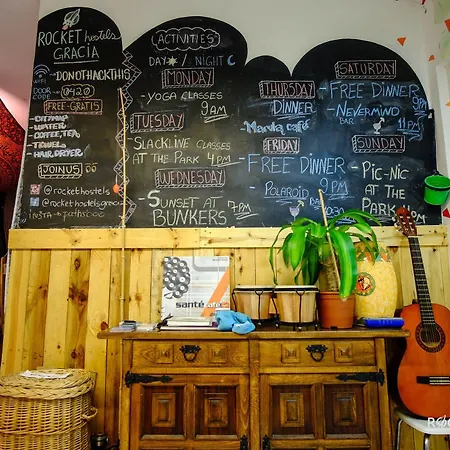 ROCKET hostels
GRACIA
WIFI
- DONOTHACKTHIS
DOOR CODE 0420
FREE-GRATIS
- CITYMAP
- WATER
- COFFEE, TEA
- TOWELS
- HAIR DRYER
JOIN US
rockethostels
@rockethostelsgracia
ACTIVITIES
DAY / NIGHT
MONDAY
- YOGA CLASSES
9AM
TUESDAY
- SLACKLINE CLASSES
AT THE PARK 4PM
WEDNESDAY
- SUNSET AT
BUNKERS 7PM
THURSDAY
DINNER
FRIDAY
- FREE DINNER
- POLAROID 9PM
BAR
SATURDAY
- FREE DINNER
- NEVERMIND 9PM
BAR 11PM
SUNDAY
- PIC-NIC
AT THE
PARK
santé